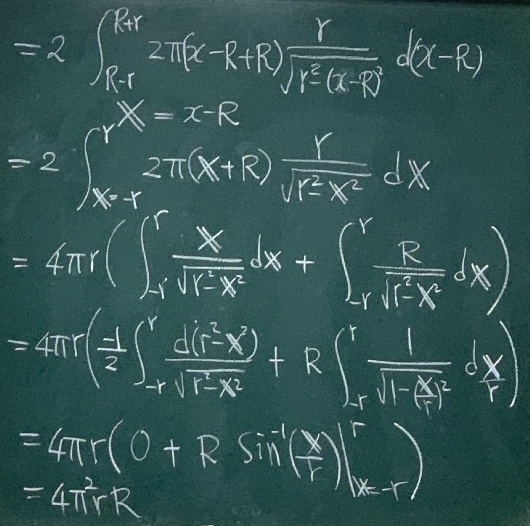 = 2 ∫_{R-r}^{R+r} 2π(x-R+R) r/√(r²-(x-R)²) d(x-R)
X = x-R
= 2 ∫_{X=-r}^{r} 2π(X+R) r/√(r²-X²) dX
= 4πr ( ∫_{-r}^{r} X/√(r²-X²) dX + ∫_{-r}^{r} R/√(r²-X²) dX )
= 4πr ( -1/2 ∫_{-r}^{r} d(r²-X²)/√(r²-X²) + R ∫_{-r}^{r} 1/√(1-(X/r)²) dX/r )
= 4πr ( 0 + R Sin⁻¹(X/r) |_{X=-r}^{r} )
= 4π²rR